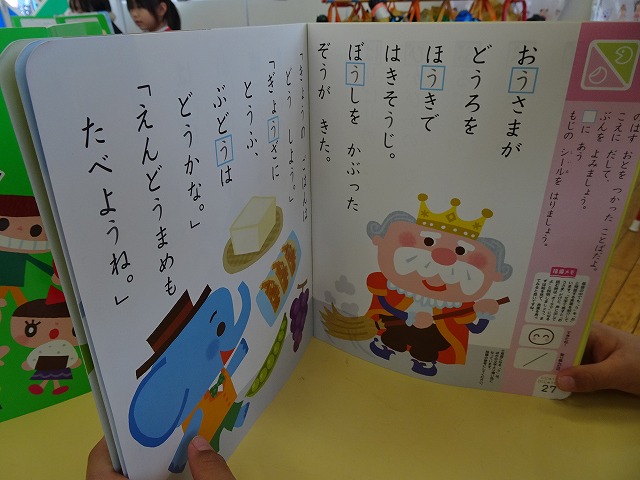 のばす おとを つかった ことばだよ。
こえに だして、
ぶんを よみましょう。
□に あう
もじの シールを はりましょう。
おうさまが
どうろを
ほうきで
はきそうじ。
ぼうしを かぶった
ぞうが きた。
「きょうの ごはんは
どう しよう。」
「ぎょうざに
とうふ、
ぶどうは
どうかな。」
「えんどうまめも
たべようね。」
27